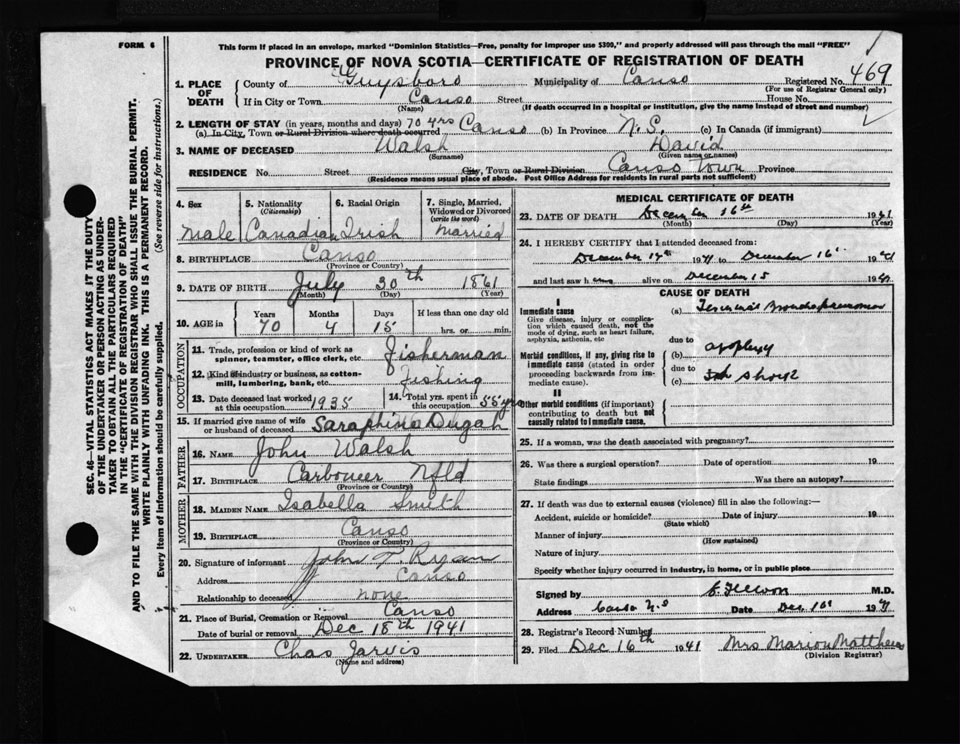 FORM 6
This form if placed in an envelope, marked "Dominion Statistics—Free, penalty for improper use $300," and properly addressed will pass through the mail "FREE"
PROVINCE OF NOVA SCOTIA—CERTIFICATE OF REGISTRATION OF DEATH
1. PLACE OF DEATH
County of Guysboro Municipality of Canso Registered No. 469
(For use of Registrar General only)
If in City or Town Canso Street House No.
(Name) (If death occurred in a hospital or institution, give the name instead of street and number)
2. LENGTH OF STAY (in years, months and days) 70 yrs Canso (b) In Province N.S. (c) In Canada (if immigrant)
(a) In City, Town or Rural Division where death occurred
3. NAME OF DECEASED Walsh David
(Surname) (Given name or names)
RESIDENCE No. Street City, Town or Rural Division Canso Town Province
(Residence means usual place of abode. Post Office Address for residents in rural parts not sufficient)
4. Sex
male
5. Nationality (Citizenship)
Canadian
6. Racial Origin
Irish
7. Single, Married, Widowed or Divorced (write the word)
Married
8. BIRTHPLACE Canso
(Province or Country)
9. DATE OF BIRTH July 30th 1861
(Month) (Day) (Year)
10. AGE in
Years Months Days If less than one day old
70 4 15 hrs. or min.
OCCUPATION
11. Trade, profession or kind of work as spinner, teamster, office clerk, etc. Fisherman
12. Kind of industry or business, as cotton-mill, lumbering, bank, etc. Fishing
13. Date deceased last worked at this occupation 1935
14. Total yrs. spent in this occupation 55 yrs
15. If married give name of wife or husband of deceased Saraphina Dugah
FATHER
16. NAME John Walsh
17. BIRTHPLACE Carboneer Nfld
(Province or Country)
MOTHER
18. MAIDEN NAME Isabella Smith
19. BIRTHPLACE Canso
(Province or Country)
20. Signature of informant John T. Ryan
Address Canso
Relationship to deceased none
21. Place of Burial, Cremation or Removal Canso
Date of burial or removal Dec 18th 1941
22. UNDERTAKER Chas Jarvis
(Name and address)
MEDICAL CERTIFICATE OF DEATH
23. DATE OF DEATH December 16th 1941
(Month) (Day)
24. I HEREBY CERTIFY that I attended deceased from:
December 14th 1941 to December 16th 1941
and last saw h alive on December 15 1941
CAUSE OF DEATH
I
Immediate cause
Give disease, injury or complication which caused death, not the mode of dying, such as heart failure, asphyxia, asthenia, etc
(a) Terminal Broncho pneumonia
due to
Morbid conditions, if any, giving rise to immediate cause (stated in order proceeding backwards from immediate cause).
(b) apoplexy
due to
(c)
II
Other morbid conditions (if important) contributing to death but not causally related to immediate cause.
25. If a woman, was the death associated with pregnancy?
26. Was there a surgical operation? Date of operation 19
State findings Was there an autopsy?
27. If death was due to external causes (violence) fill in also the following:—
Accident, suicide or homicide? Date of injury 19
(State which)
Manner of injury
(How sustained)
Nature of injury
Specify whether injury occurred in industry, in home, or in public place
Signed by M.D.
Address Canso N.S Date Dec. 1941
28. Registrar's Record Number
29. Filed Dec 16th 1941 Mrs Marion Matthews
(Division Registrar)
SEC. 46—VITAL STATISTICS ACT MAKES IT THE DUTY OF THE UNDERTAKER OR PERSON ACTING AS UNDERTAKER TO OBTAIN ALL THE PARTICULARS REQUIRED IN THE "CERTIFICATE OF REGISTRATION OF DEATH" AND TO FILE THE SAME WITH THE DIVISION REGISTRAR WHO SHALL ISSUE THE BURIAL PERMIT.
WRITE PLAINLY WITH UNFADING INK. THIS IS A PERMANENT RECORD.
Every item of information should be carefully supplied. (See reverse side for instructions.)